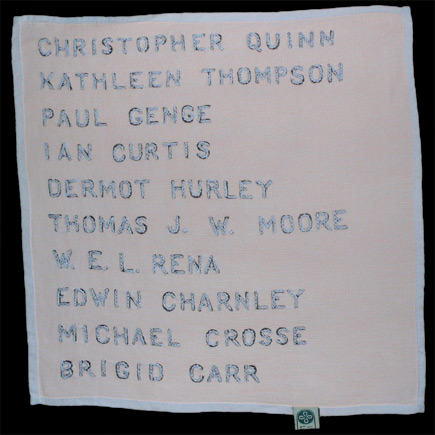 CHRISTOPHER QUINN
KATHLEEN THOMPSON
PAUL GENGE
IAN CURTIS
DERMOT HURLEY
THOMAS J. W. MOORE
W. E. L. RENA
EDWIN CHARNLEY
MICHAEL CROSSE
BRIGID CARR